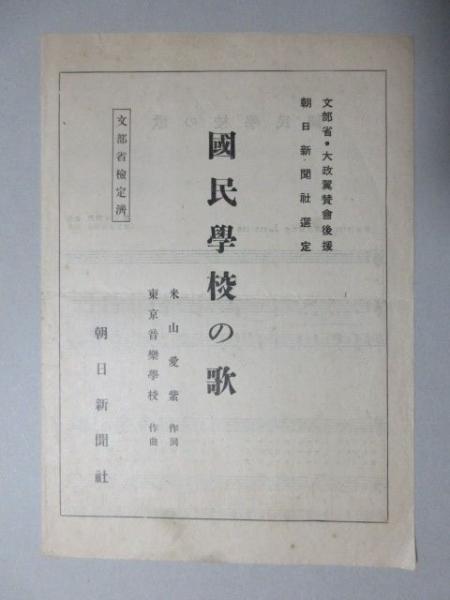 文部省・大政翼賛會後援
朝日新聞社選定
國民學校の歌
米山愛紫 作詞
東京音樂學校 作曲
朝日新聞社
文部省檢定濟